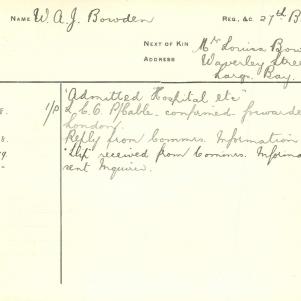 NAME W. A. J. Bowden REG., &C. 27th B
NEXT OF KIN Mrs Louisa Bow
ADDRESS Waverley Stree
Largs. Bay.
"Admitted Hospital etc"
1/P L.C.O. P/Cable, confirmed forwarde
London.
8. Reply from Commrs. Information
9. "Slip" received from Commrs. Informa
sent Inquirer.